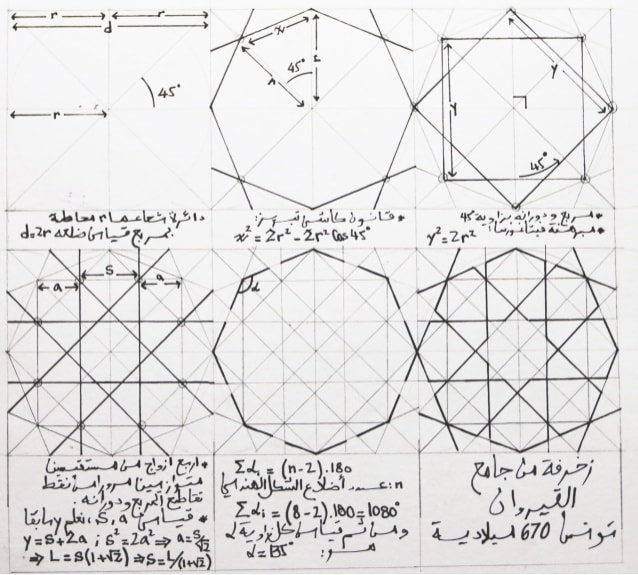 r r
d
45°
r
x
45°
r
r
y
y
45°
دائرة شعاعها r محاطة
بمربع قياس ضلعه d=2r
* قانون كاشي
x² = 2r² - 2r² Cos 45°
* مربع ودورانه بزاوية 45
* مبرهنة فيتاغورس: y² = 2r²
a S a
α
* اربع ازواج من
متوازيين مرورا من نقط
تقاطع المربع ودورانه.
* قياس a, s, نعلم y سابقا
y = S + 2a ; S² = 2a² ⇒ a = S/√2
⇒ L = S(1+√2) ⇒ S = L/(1+√2)
Σαᵢ = (n-2).180
n: عدد أضلاع الشكل الهندسي
Σαᵢ = (8-2).180 = 1080°
ومن ثم قياس كل زاوية α
هو: α = 135°
زخرفة من جامع
القيروان
تونس 670 ميلادية